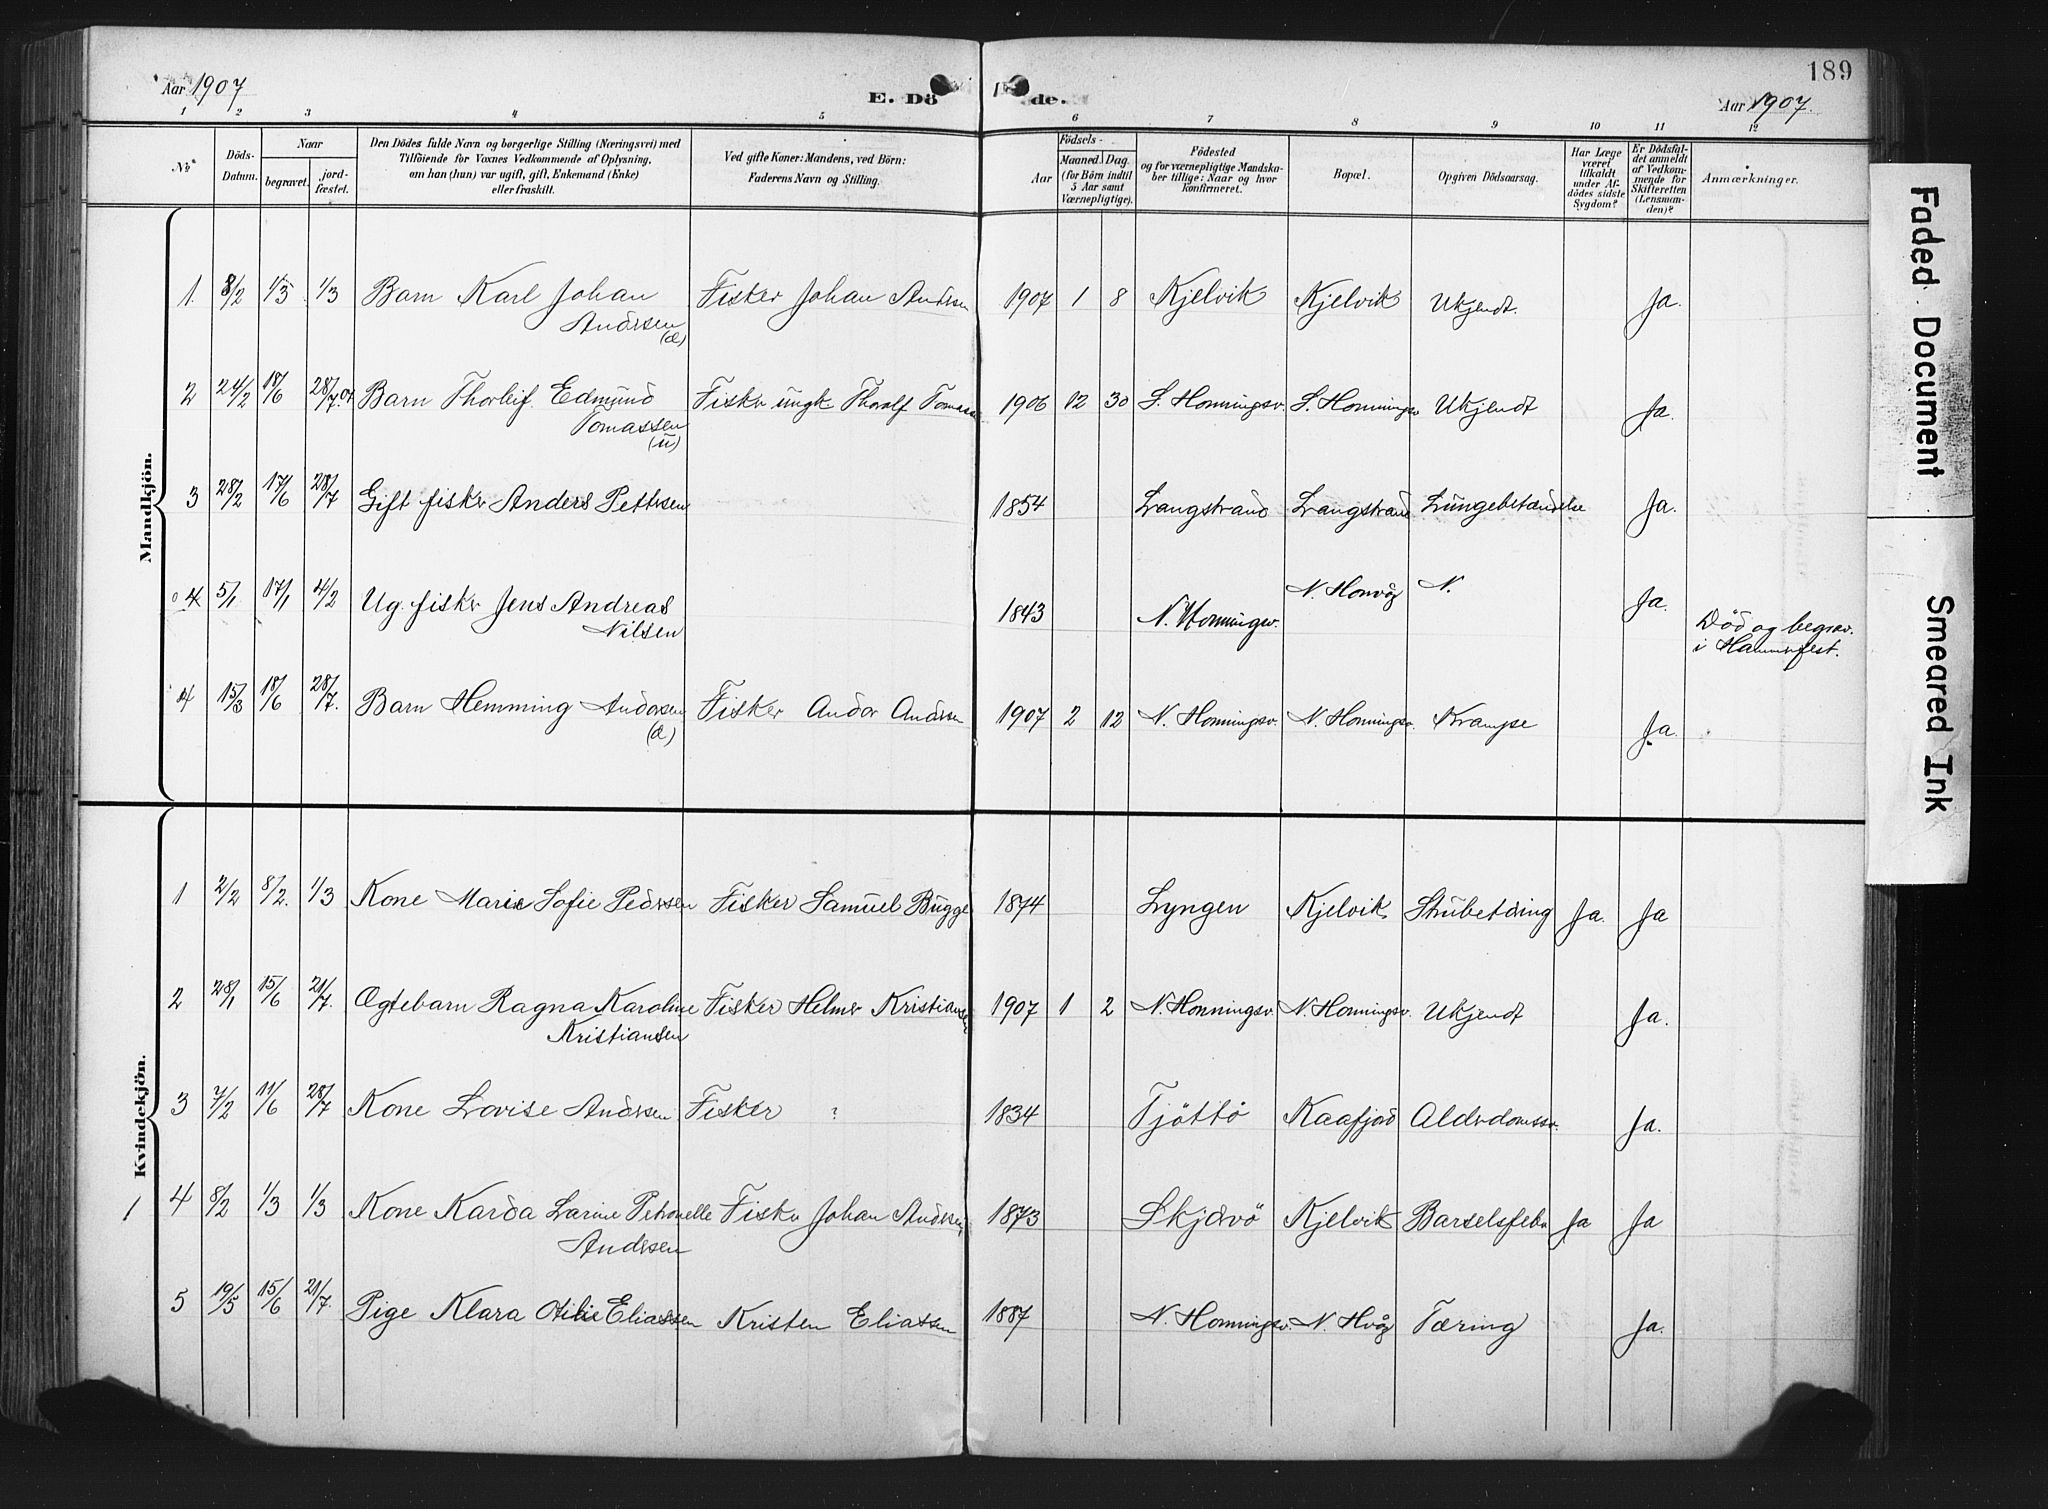 189
Aar 1907
E. Dö de.
Aar 1907.
1 2 3 4 5 6 7 8 9 10 11 12
No
Döds-Datum.
Naar
begravet.
jord-fæstet.
Den Dödes fulde Navn og borgerlige Stilling (Næringsvei) med
Tilföiende for Voxnes Vedkommende af Oplysning,
om han (hun) var ugift, gift, Enkemand (Enke)
eller fraskilt.
Ved gifte Koner: Mandens, ved Börn:
Faderens Navn og Stilling.
Födsels-
Aar
Maaned. Dag.
(for Börn indtil
5 Aar samt
Værnepligtige).
Födested
og for værnepligtige Mandska-
ber tillige: Naar og hvor
konfirmeret.
Bopæl.
Opgiven Dödsaarsag.
Har Læge
været
tilkaldt
under Af-
dödes sidste
Sygdom?
Er Dödsfal-
det anmeldt
af Vedkom-
mende for
Skifteretten
(Lensman-
den)?
Anmærkninger.
Mandkjön.
1. 8/2 1/3 1/3 Barn Karl Johan Fisker Johan Andersen 1907 1 8 Kjelvik Kjelvik Ukjendt. Ja.
Andersen
(æ)
2 24/2 18/6 28/7.07 Barn Thorleif Edmund Fisker ungk Thoralf Tomassen 1906 12 30 S. Honningsv. S. Honningsv Ukjendt Ja.
Tomassen
(u)
3 28/2 17/6 28/7 Gift fisker Anders Pettersen 1854 Langstrand Langstrand Lungebetændelse Ja.
4 5/1 17/1 4/2 Ug. fisker Jens Andreas 1843 N. Honningsv. N. Honvåg N. Ja.
Nilsen
Död og begrav.
i Hammerfest.
4 15/3 18/6 28/7. Barn Hemming Andersen Fisker Andor Andersen 1907 2 12 N. Honningsv. N. Honningsv. Krampe Ja.
(æ)
Kvindekjön.
1 2/2 8/2. 1/3 Kone Marie Sofie Pedersen Fisker Samuel Bugge 1874 Lyngen Kjelvik Strubetæring Ja. Ja
2 28/1 15/6 21/7. Ægtebarn Ragna Karoline Fisker Helmer Kristiansen 1907 1 2 N. Honningsv. N. Honningsv. Ukjendt Ja.
Kristiansen
3 7/2 11/6 28/7 Kone Lovise Andersen Fisker ? 1834 Tjöttö Kaafjord Alderdomssv. Ja.
1 4 8/2 1/3 1/3 Kone Karda Larine Petronelle Fisker Johan Andersen 1873 Skjærvö Kjelvik Barselsfeber Ja Ja
Andersen
5 19/5 15/6 21/7. Pige Klara Otilie Eliassen Kristen Eliassen 1887 N. Honningsv. N. Hvåg Tæring Ja.
Faded Document
Smeared Ink